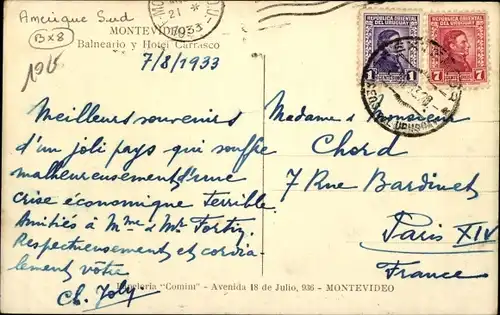 Amérique Sud
B x 8
MONTEVIDEO
Balneario y Hotel Carrasco
1933
21
7/8/1933
REPUBLICA ORIENTAL
DEL URUGUAY
1 1
REPUBLICA ORIENTAL
DEL URUGUAY
7 7
Meilleurs souvenirs
d'un joli pays qui souffre
malheureusement d'une
crise économique terrible.
Amitiés à Mme & Mr Fortin.
Respectueusement et cordia-
lement vôtre
Ch. Joly
Madame & monsieur
Chord
7 Rue Bardinet
Paris XIV
France
Papelería "Comini" - Avenida 18 de Julio, 936 - MONTEVIDEO